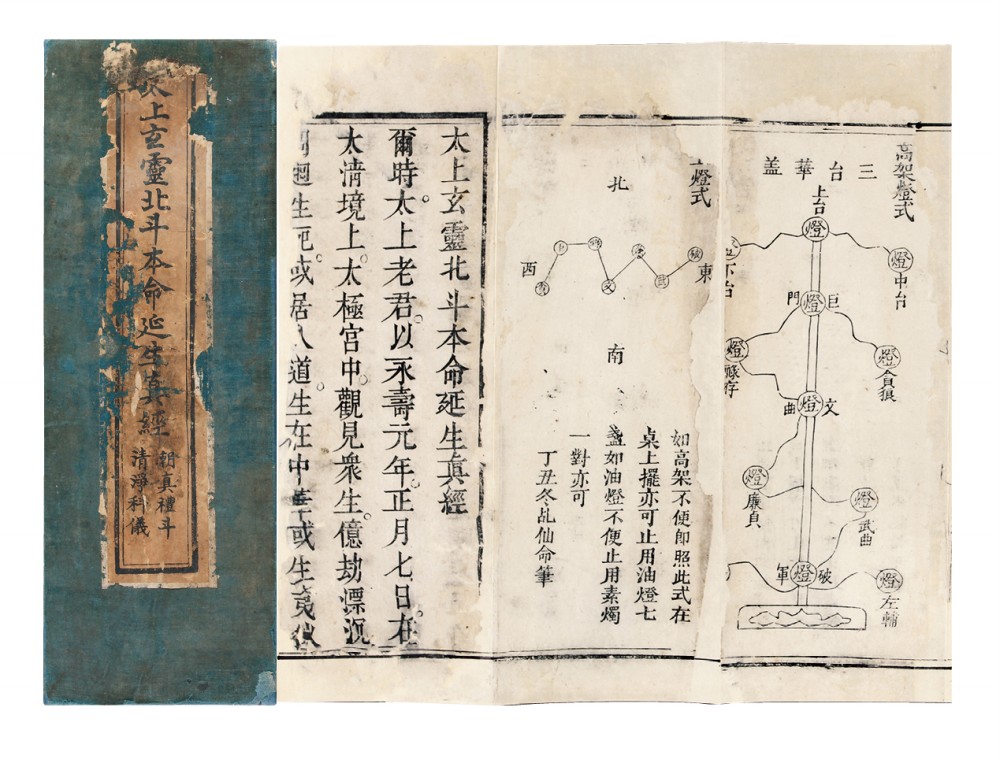 太上玄靈北斗本命延生真經
朝真禮斗
清淨科儀
高架燈式
三台華蓋
上台
燈
燈
中台
下台
巨門
燈
燈
貪狼
燈
祿存
文曲
燈
燈
廉貞
燈
武曲
破軍
燈
燈
左輔
燈式
北
東
西
南
文
武
如高架不便即照此式在
桌上擺亦可止用油燈七
盞如油燈不便止用素燭
一對亦可
丁丑冬乩仙命筆
太上玄靈北斗本命延生真經
爾時太上老君。以永壽元年。正月七日。在
太清境上。太極宮中。觀見衆生。億劫漂沉
迴生死。或居人道。生在中華或生夷狄